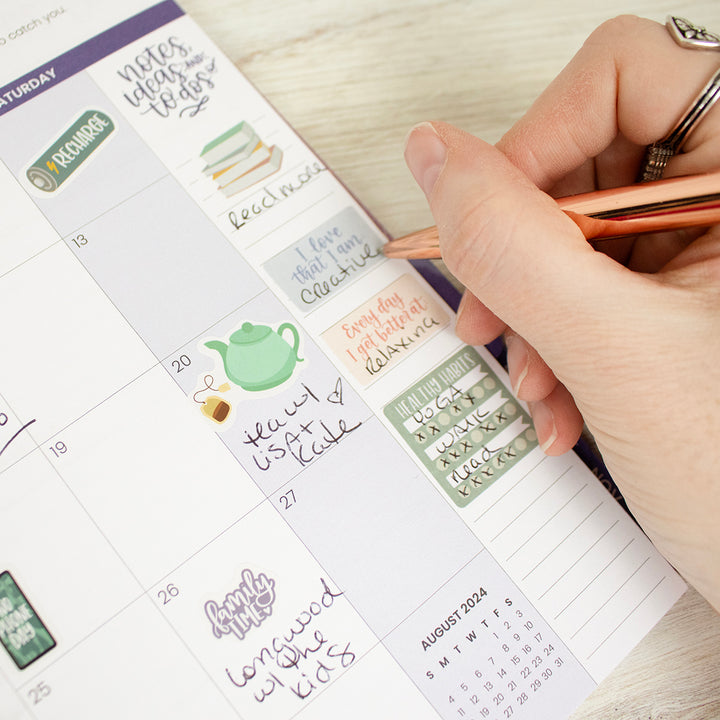 o catch you.
ATURDAY
notes
ideas and
to dos
RECHARGE
Read more
13
I love
that I am
Creative
Every day
I get better at
Relaxing
20
tea w/
Lisa +
Kate
HEALTHY HABITS
YOGA
xxxx
WALK
xxxx
Read
xxxxx
19
27
26
family
TIME
Longwood
w/ the
kids
PHONE
DAY
25
NOV
AUGUST 2024
S M T W T F S
1 2 3
4 5 6 7 8 9 10
11 12 13 14 15 16 17
18 19 20 21 22 23 24
27 28 29 30 31